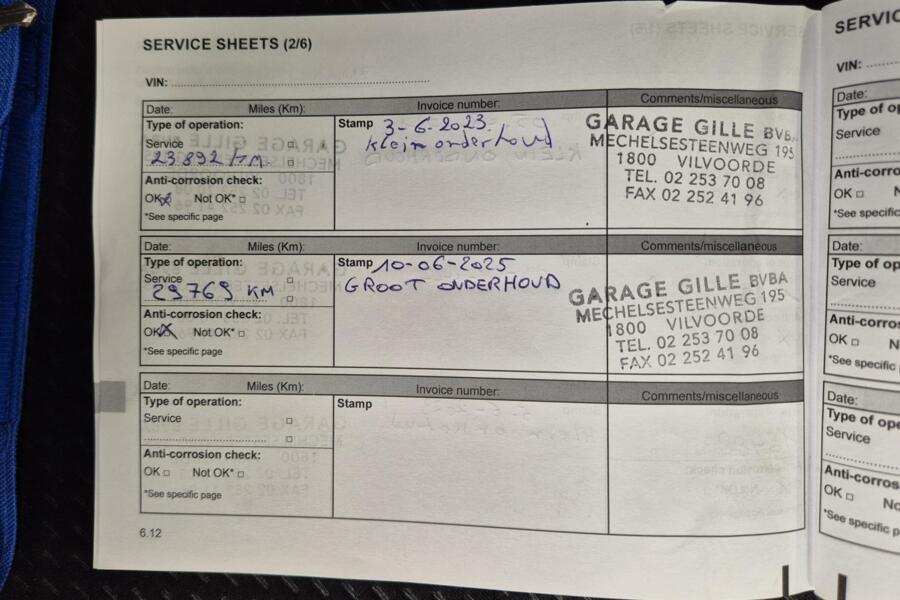 SERVICE SHEETS (2/6)
VIN:
Date: Miles (Km): Invoice number: Comments/miscellaneous
Type of operation:
Service
23 892 KM.
Anti-corrosion check:
OK Not OK*
*See specific page
Stamp 3-6-2023.
Klein onderhoud
GARAGE GILLE BVBA
MECHELSESTEENWEG 195
1800 VILVOORDE
TEL. 02 253 70 08
FAX 02 252 41 96
Date: Miles (Km): Invoice number: Comments/miscellaneous
Type of operation:
Service
29769 KM
Anti-corrosion check:
OK Not OK*
*See specific page
Stamp 10-06-2025
GROOT ONDERHOUD
GARAGE GILLE BVBA
MECHELSESTEENWEG 195
1800 VILVOORDE
TEL. 02 253 70 08
FAX 02 252 41 96
Date: Miles (Km): Invoice number: Comments/miscellaneous
Type of operation:
Service
Anti-corrosion check:
OK Not OK*
*See specific page
Stamp
6.12
VIN:
Date:
Type of
Service
OK
*See specific
Date:
Type of
Service
OK
*See specific
Date:
Type of
Service
OK
*See specific